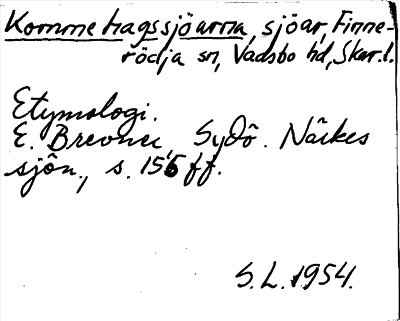 Kommehagssjöarna, sjöar, Finne-
rödja sn, Vadsbo hd, Skar. l.
Etymologi.
E. Brevner, Sydö. Närkes
sjön., s. 155 ff.
S.L. 1954.